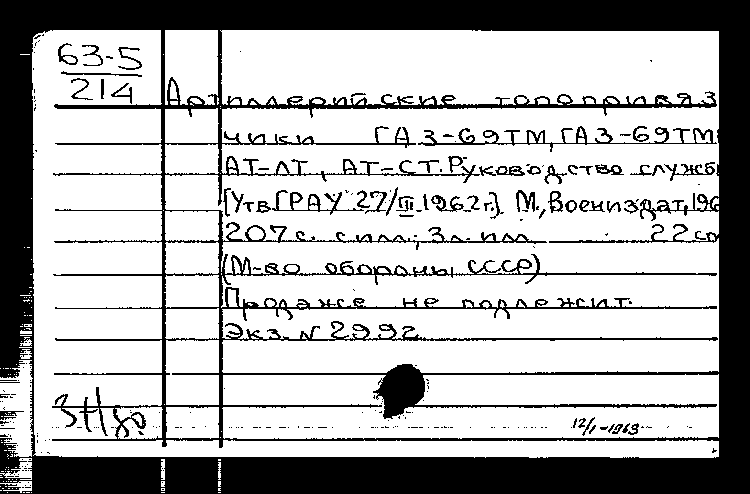 63-5
214
Артиллерийские топопривяз
чики ГАЗ-69ТМ, ГАЗ-69ТМ
АТ-ЛТ, АТ-СТ. Руководство служб
[Утв. ГРАУ 27/III 1962г.] М., Воениздат, 196
207с. с илл.; 3л. илл 22 см
(М-во обороны СССР)
Продаже не подлежит.
Экз. N 2992
12/I-1963